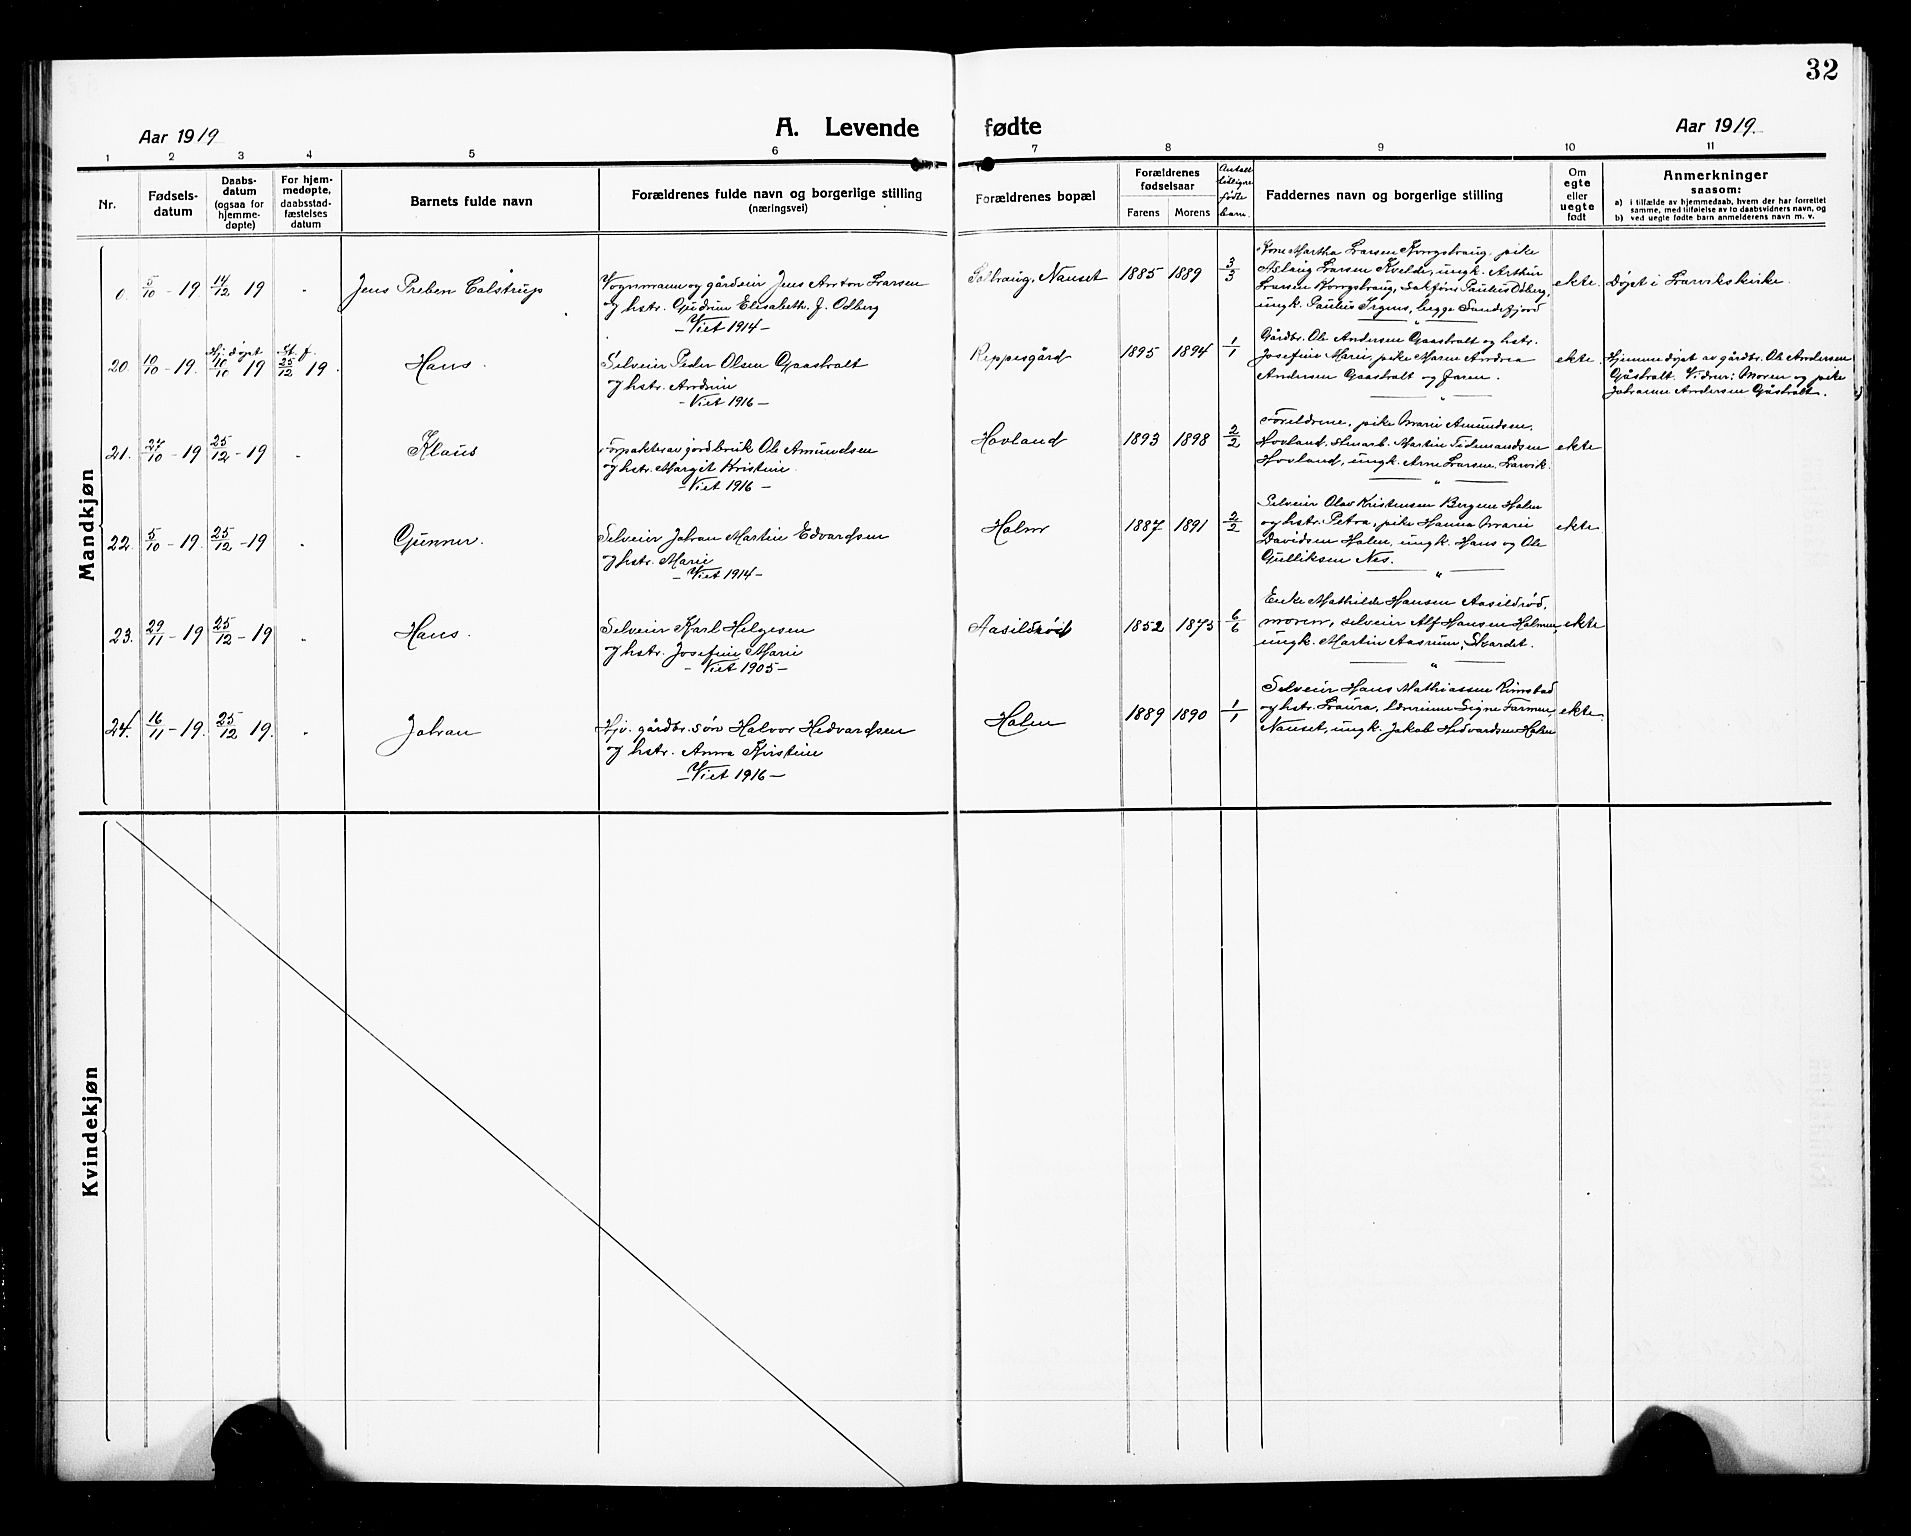 32
Aar 1919
A. Levende fødte
Aar 1919.
1 2 3 4 5 6 7 8 9 10 11
Nr.
Fødsels-
datum
Daabs-
datum
(ogsaa for
hjemme-
døpte)
For hjem-
medøpte,
daabsstad-
fæstelses
datum
Barnets fulde navn
Forældrenes fulde navn og borgerlige stilling
(næringsvei)
Forældrenes bopæl
Forældrenes
fødselsaar
Farens Morens
Antall
tidligere
fødte
barn.
Faddernes navn og borgerlige stilling
Om
egte
eller
uegte
født
Anmerkninger
saasom:
a) i tilfælde av hjemmedaab, hvem der har forrettet
samme, med tilføielse av to daabsvidners navn, og
b) ved uegte fødte barn anmelderens navn m. v.
Mandkjøn
0. 5/10 - 19. 14/12 19 Jens Preben Calstrup
Vognmann og gårdeier Jens Anton Larsen
og hstr. Gudrun Elisabeth J. Odberg
- Viet 1914 -
Nanset 1885 1889 3/3
Kone Martha Larsen Kongshaug, pike
Aslaug Larsen Kvelde, ungk. Arthur
Larsen Kongshaug, Sakfører Paulus Odberg,
ungk. Paulus Irgens, begge Sandefjord
ekte. Døpt i Larviks kirke.
20. 10/10 - 19. Hj. døpt 10/10 19 St. f. 25/12 19. Hans.
Selveier Peder Olsen Gaasholt
og hstr. Andrine
- Viet 1916 -
Reppesgård 1895 1894 1/1
Gårdbr. Ole Andersen Gaasholt og hstr.
Josefine Marie, pike Maren Andrea
Andersen Gaasholt og Faren.
ekte. Hjemmedøpt av gårdbr. Ole Andersen
Gåsholt. Vidner: Moren og pike
Johanne Andersen Gåsholt.
21. 27/10 - 19 25/12 - 19 Klaus
Forpakter av jordbruk Ole Amundsen
og hstr. Margit Kristine.
- Viet 1916 -
Hovland 1893 1898 2/2
Foreldrene, pike Marie Amundsen,
Hovland, Martin Tidemandsen
Hovland, ungk. Arne Larsen, Larvik.
ekte
22. 5/10 - 19. 25/12 - 19 Gunner.
Selveier Johan Martin Edvardsen
og hstr. Marie
- Viet 1914 -
Halm 1887 1891 2/2
Selveier Olav Kristensen Bergene Halm
og hstr. Petra, pike Hanna Marie
Davidsen Holm, ungk. Hans og Ole
Gulliksen Nes.
ekte.
23. 29/11 - 19 25/12 - 19 Hans.
Selveier Karl Helgesen
og hstr. Josefine Marie
- Viet 1905 -
Aasildrød 1852 1873 6/6
Enke Mathilde Hansen Aasildrød,
moren, selveier Alf Hansen Holmen,
ungk. Martin Aasrum, Skardet.
ekte
24. 16/11 - 19. 25/12 19. Johan
Hjv. gårdbr. søn Halvor Hedvardsen
og hstr. Anna Kirstine
- Viet 1916 -
Holm 1889 1890 1/1
Selveier Hans Mathiassen Rimstad
og hstr. Laura, lærerinne Signe Farmen,
Nanset, ungk. Jakob Hedvardsen Holm
ekte.
Kvindekjøn